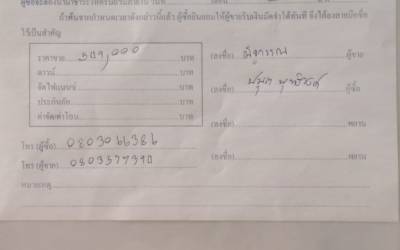 ถ้าพ้นจากกำหนดเวลาดังกล่าวนี้แล้ว ผู้ซื้อยินยอมให้ผู้ขายริบเงินมัดจำได้ทันที จึงได้ลงลายมือชื่อ
ไว้เป็นสำคัญ
ราคาขาย 509,000 บาท
(ลงชื่อ) ผู้ขาย
ดาวน์ บาท
จัดไฟแนนซ์ บาท
(ลงชื่อ) ผู้ซื้อ
ประกันภัย บาท
ค่าจัด/ค่าโอน บาท
(ลงชื่อ) พยาน
โทร (ผู้ซื้อ) 0803066386
(ลงชื่อ) พยาน
โทร (ผู้ขาย) 0803577390
หมายเหตุ